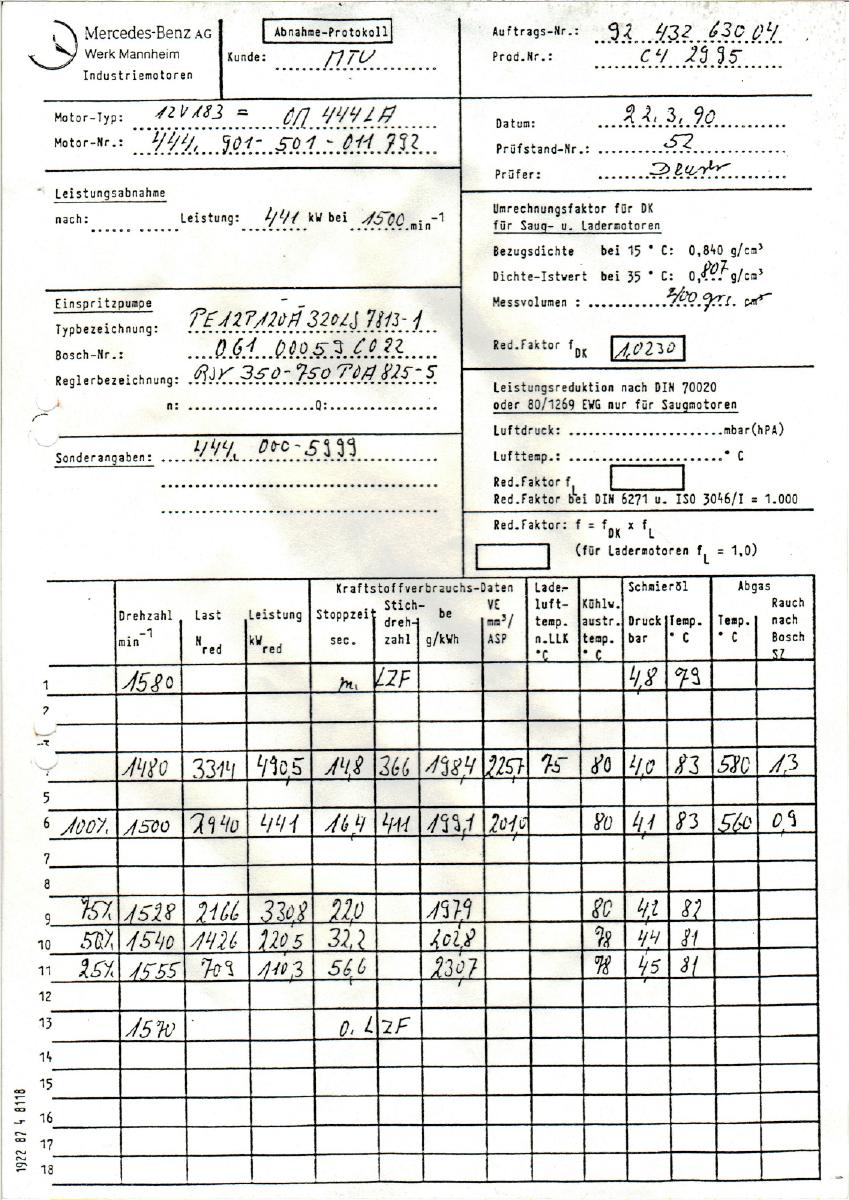 Mercedes-Benz AG
Werk Mannheim
Industriemotoren
Abnahme-Protokoll
Kunde: MTU
Auftrags-Nr.: 92 432 63004
Prod.Nr.: C4 2995
Motor-Typ: 12V183 = OM 444LA
Motor-Nr.: 444. 901-501-011 792
Datum: 22.3.90
Prüfstand-Nr.: 52
Prüfer:
Leistungsabnahme
nach: Leistung: 441 kW bei 1500 min-1
Umrechnungsfaktor für DK
für Saug- u. Ladermotoren
Bezugsdichte bei 15 ° C: 0,840 g/cm³
Dichte-Istwert bei 35 ° C: 0,807 g/cm³
Messvolumen : 400 grs. cm³
Red.Faktor fDK 1,0230
Einspritzpumpe
Typbezeichnung: PE12P120A320LS7813-1
Bosch-Nr.: 061 00059 C022
Reglerbezeichnung: RSV 350-750 P0A 825-5
n: Q:
Leistungsreduktion nach DIN 70020
oder 80/1269 EWG nur für Saugmotoren
Luftdruck: mbar(hPA)
Lufttemp.: ° C
Red.Faktor fL
Red.Faktor bei DIN 6271 u. ISO 3046/I = 1.000
Sonderangaben: 444. 000-5999
Red.Faktor: f = fDK x fL
(für Ladermotoren fL = 1,0)
Drehzahl min-1 Last Nred Leistung kWred Kraftstoffverbrauchs-Daten Stoppzeit sec. Stich-drehzahl be g/kWh VE mm³/ASP Lade-luft-temp. n.LLK °C Kühlw. austr. temp. ° C Schmieröl Druck bar Temp. ° C Abgas Temp. ° C Rauch nach Bosch SZ
1 1580 m. LZF 4,8 79
2
3
1480 3314 490,5 14,8 366 198,4 225,7 75 80 4,0 83 580 1,3
5
6 100% 1500 2940 441 16,4 411 199,1 201,0 80 4,1 83 560 0,9
7
8
9 75% 1528 2166 330,8 22,0 197,9 80 4,2 82
10 50% 1540 1426 220,5 32,2 202,8 78 4,4 81
11 25% 1555 709 110,3 56,6 230,7 78 4,5 81
12
13 1570 o. LZF
14
15
16
17
18
1922 87 4 8118